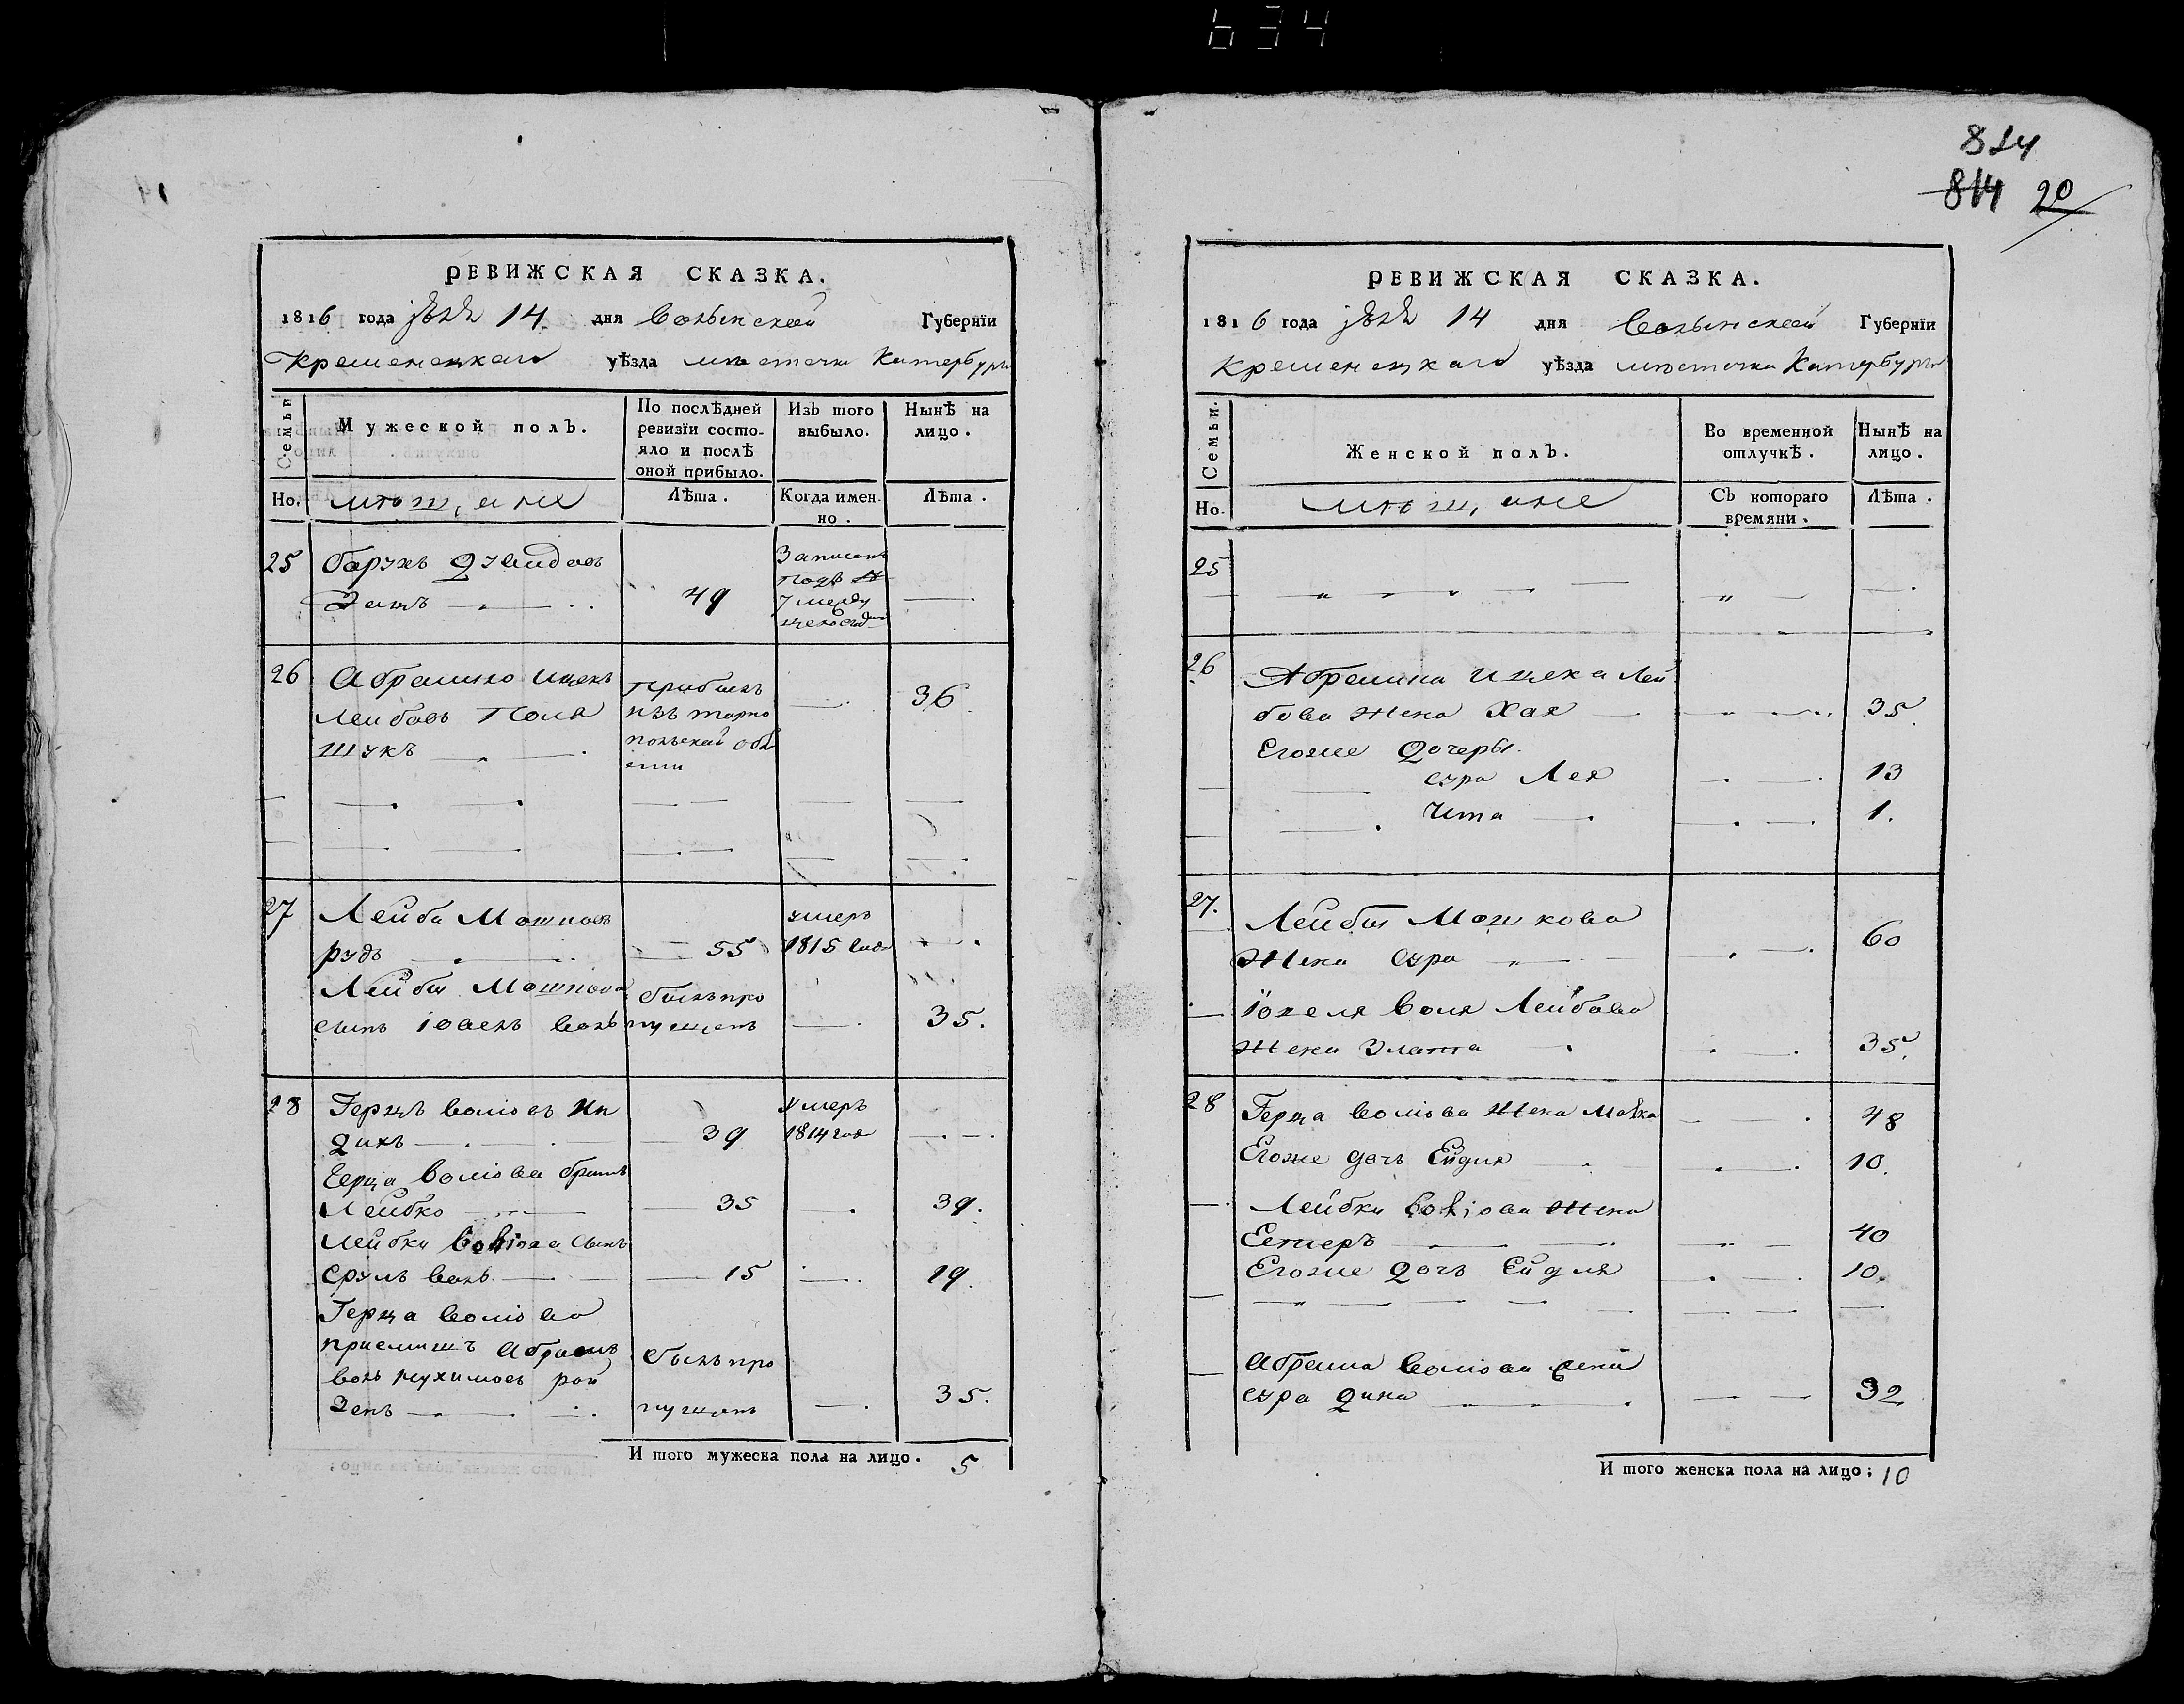 634
РЕВИЖСКАЯ СКАЗКА.
1816 года 14 дня Волынской Губернїи
Кременецкаго уѣзда мѣстечка Катербурга
Семьи
Мужеской полЪ.
По послѣдней ревизїи состо-
яло и послѣ
оной прибыло.
ИзЪ того
выбыло.
НынѣЪ на
лицо.
Но. мѣщане
Лѣта.
Когда имен-
но.
Лѣта.
25 Барухъ Дувидовъ
49
Записанъ
подъ
—
26 Абрамко Ицекъ
Лейбовъ Поля
щукъ
Прибылъ
изъ тарно
польской обл
асти
36
27 Лейба Мошковъ
рудъ
55
умеръ
1815 года
Лейбы Мошкова
сынъ Іовель Воль
былъ про
пущенъ
35.
28 Герцъ Волiовъ Ин
дикъ
39
Умеръ
1814 года
Герца Волiова братъ
Лейбко
35
39.
Лейбки Волiова сынъ
Сруль Воль
15
19.
Герца Волiова
приемишъ Абрамъ
Воль Нухимовъ рой
зенъ
былъ про
пущенъ
35.
И того мужеска пола на лицо. 5
814
814 20
РЕВИЖСКАЯ СКАЗКА.
1816 года 14 дня Волынской Губернїи
Кременецкаго уѣзда мѣстечка Катербурга
Семьи.
Женской полЪ.
Во временной
отлучкѣ.
Нынѣ на
лицо.
Но. мѣщане
СЪ котораго
времяни.
Лѣта.
25
26 Абрамка Ицека Лей
бова жена Хая 35.
Егоже Дочеры
сура Лея 13
Чита 1.
27. Лейбы Мошкова
Жена Сура 60
Іовеля Воля Лейбова
жена Злата 35.
28 Герца Волiова Жена Малка 48
Егоже дочь Ейдля 10.
Лейбки Волiова Жена
Естеръ 40
Егоже дочь Ейдля 10.
Абрама Волiова жена
сура Дина 32
И того женска пола на лицо; 10